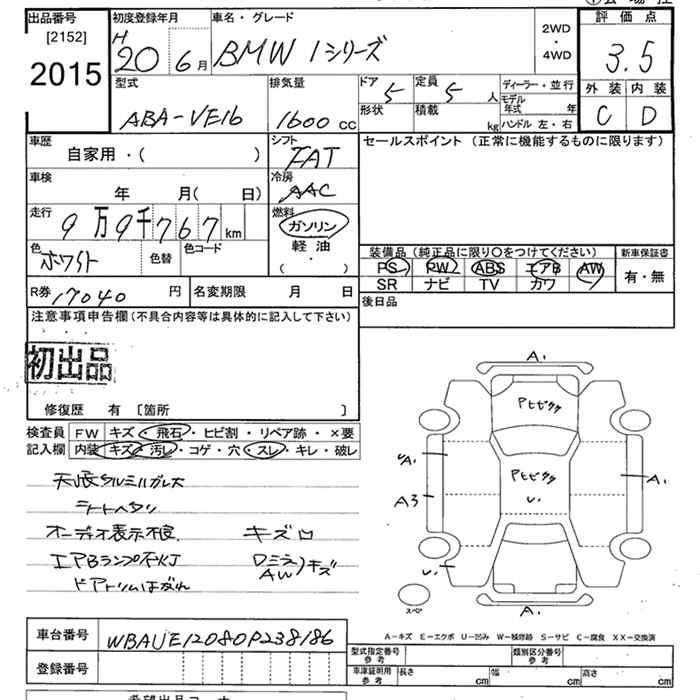 出品番号
[2152]
2015
初度登録年月
H 20 6月
車名・グレード
BMW 1シリーズ
2WD
・
4WD
評価点
3.5
外装 内装
C D
型式
ABA-VE16
排気量
1600 CC
ドア 5
定員 5 人
形状
積載 kg
ディーラー・並行
モデル年式 年
ハンドル 左・右
車歴
自家用・( )
シフト
FAT
セールスポイント (正常に機能するものに限ります)
車検
年 月( 日)
冷房
AAC
走行
9万9千767 km
燃料
ガソリン
軽油
・
( )
色
ホワイト
色替
色コード
装備品 (純正品に限り○をつけてください)
新車保証書
PS PW ABS エアB AW
SR ナビ TV カワ
有・無
R券 17040 円
名変期限 月 日
後日品
注意事項申告欄(不具合内容等は具体的に記入して下さい)
初出品
修復歴 有 [箇所 ]
検査員
記入欄
FW キズ・飛石・ヒビ割・リペア跡・×要
内装 キズ・汚レ・コゲ・穴・スレ・キレ・破レ
シートヘタリ
オーディオ表示不良 キズ
エアBランプ不灯 Dミラー キズ
AW
ドアトリムはがれ
A.
PヒビクケA
PヒビクケU.
A.
A3
A.
U.
A.
スペア
A-キズ E-エクボ U-凹み W-補修跡 S-サビ C-腐食 XX-交換済
車台番号
WBAUE12080P238186
登録番号
型式指定番号
参考
類別区分番号
参考
車庫証明用
参考
長さ cm
幅 cm
高さ cm